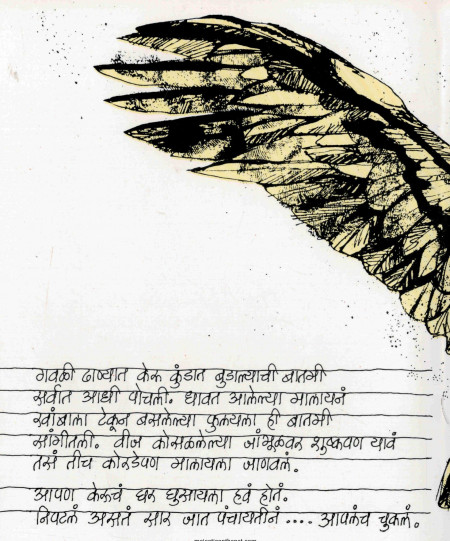 गवळी वाण्यात केरू कुंडात बुडाल्याची बातमी
सर्वात आधी पोचली. धावत आलेल्या मालायनं
खांबाला टेकून बसलेल्या फुलयला ही बातमी
सांगीतली. वीज कोसळलेल्या जांभूळवर शुष्कपण यावं
तसं तीच कोरडेपण मालायला जाणवलं.
आपण केरूचं घर घुसायला हवं होतं.
निपटलं असतं सारं जात पंचायतीनं .... आपलंच चुकलं.